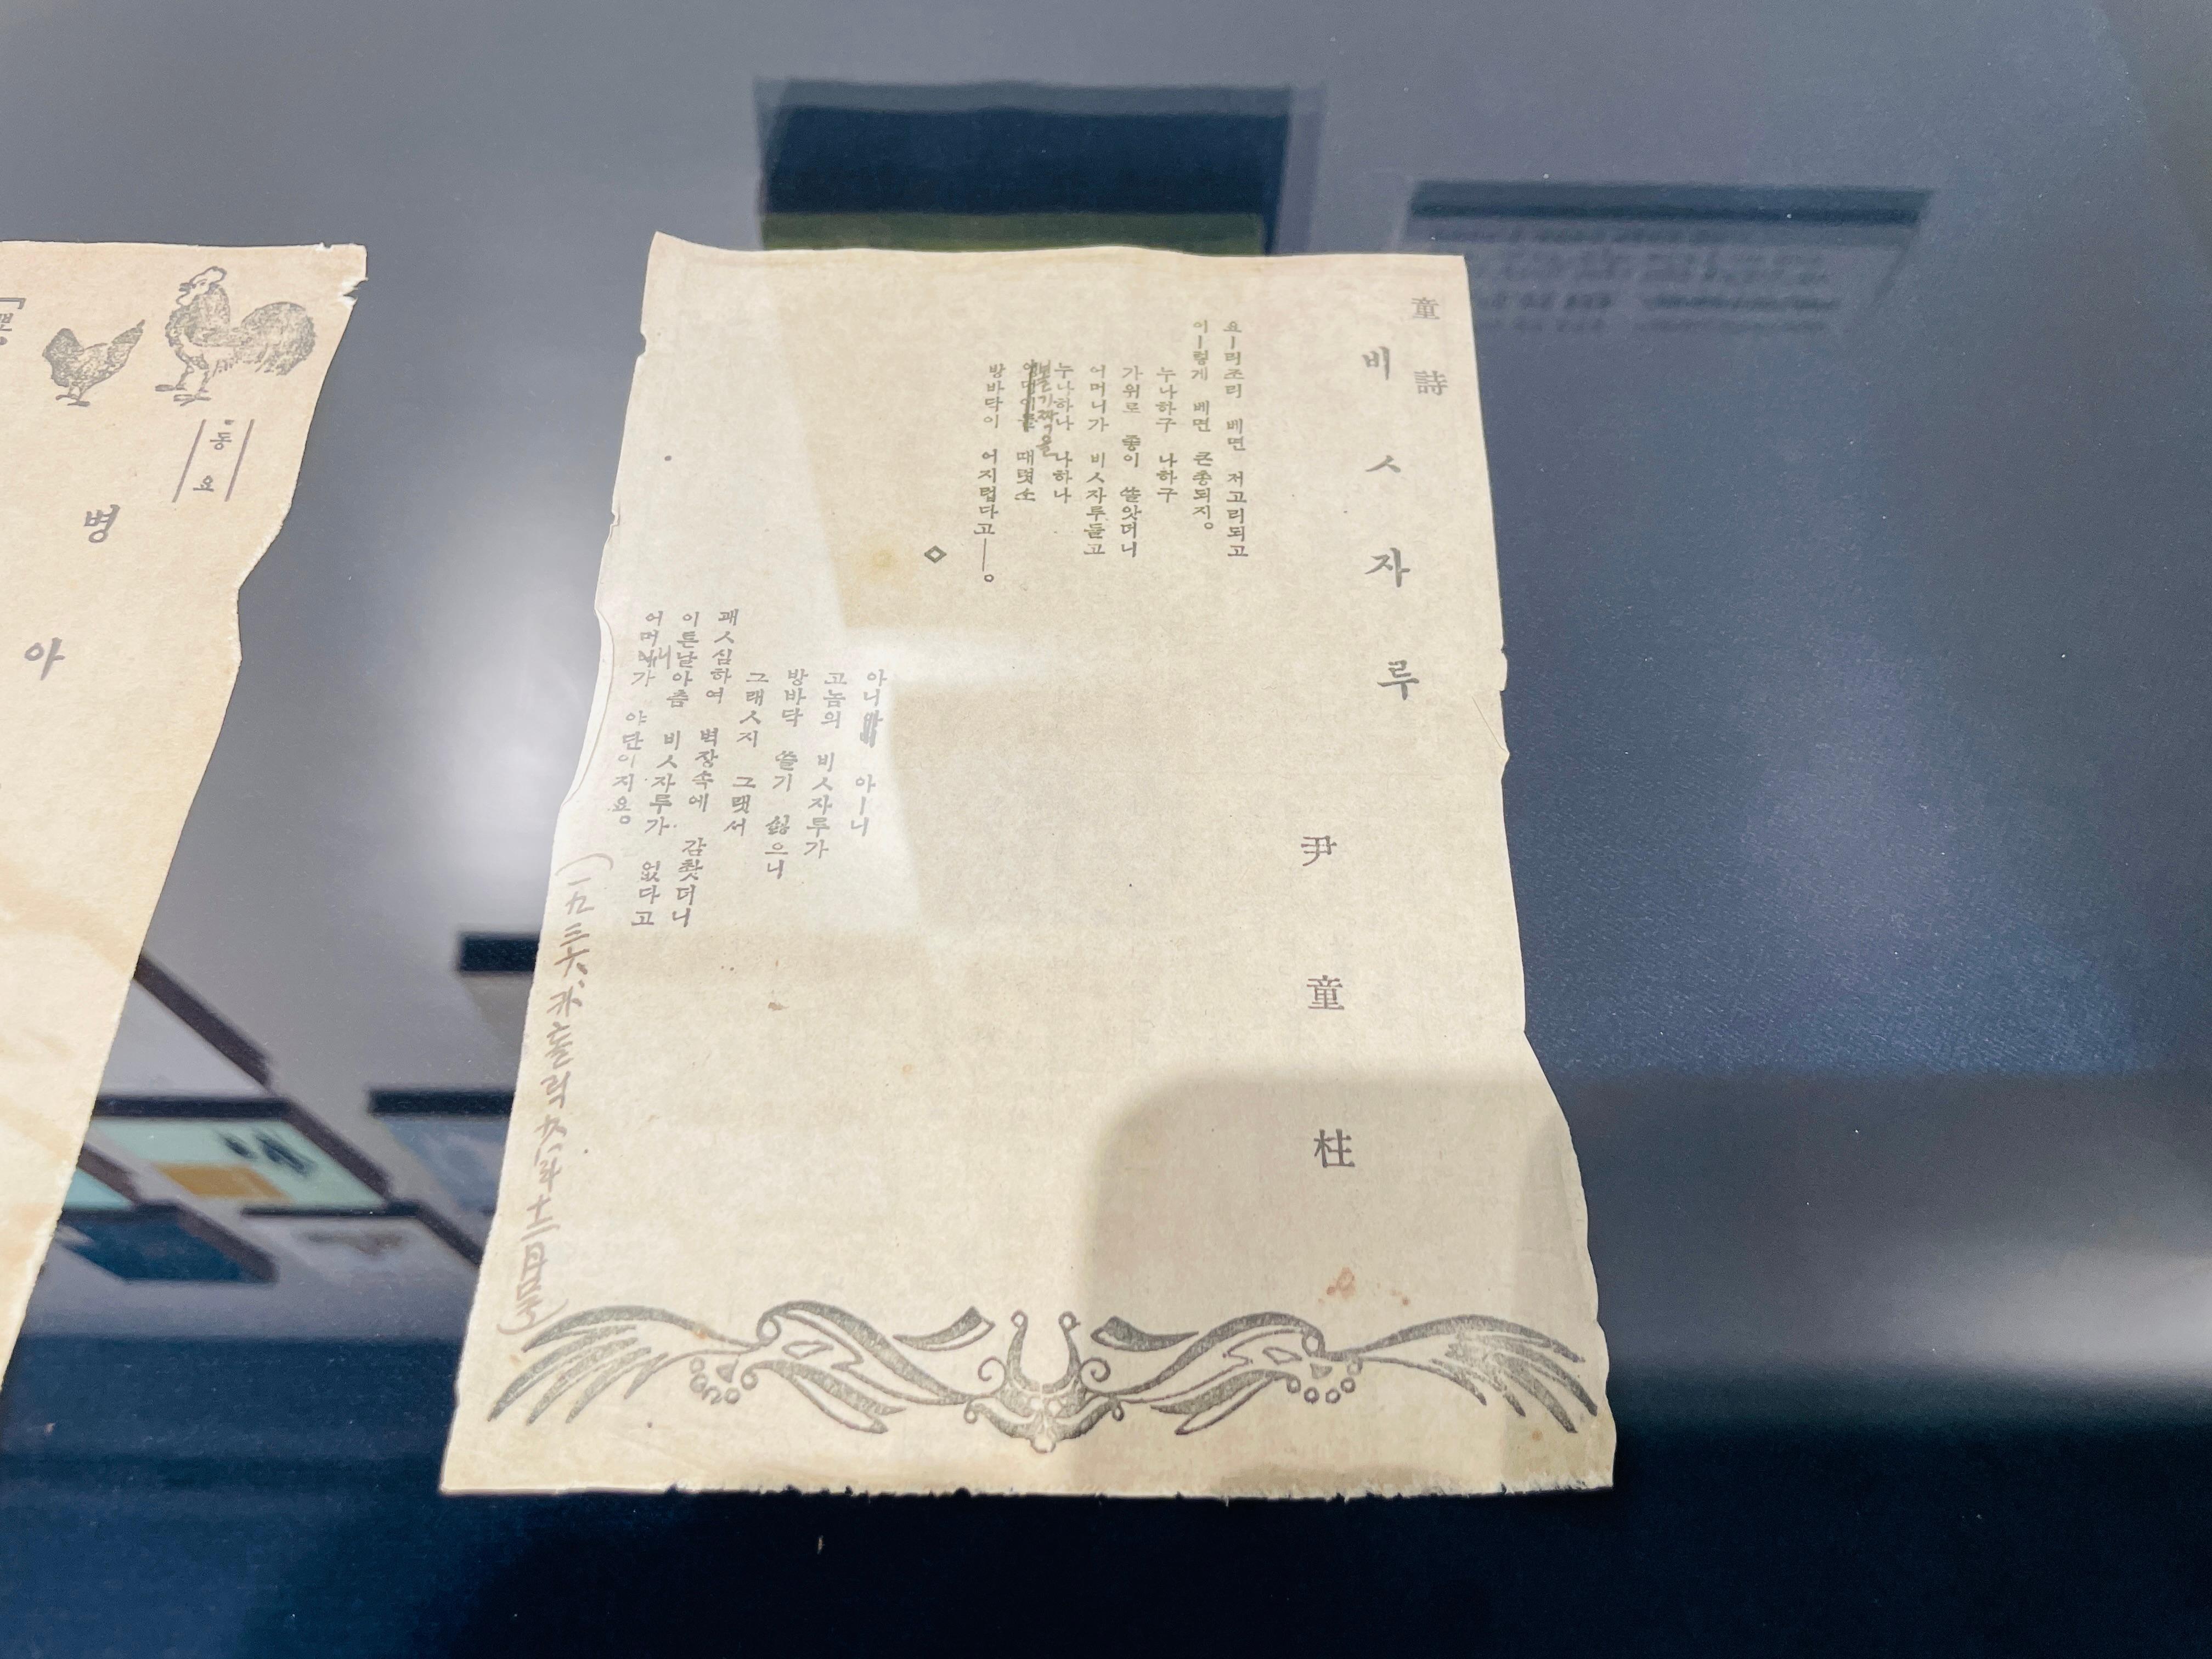 童詩
비ㅅ자루
尹童柱
요ㅣ리조리 베면 저고리되고
이ㅣ렇게 베면 큰총되지。
누나하구 나하구
가위로 종이 쏠앗더니
어머니가 비ㅅ자루들고
누나하나 나하나
볼기짝을
때렷소
방바닥이 어지럽다고——。
◇
아니 아ㅣ니
고놈의 비ㅅ자루가
방바닥 쓸기 싫으니
그래ㅅ지 그랫서
괘ㅅ심하여 벽장속에 감촷더니
이튼날아츰 비ㅅ자루가 없다고
어머니가 야단이지요。
(一九三六、카톨릭少年十二月号)
동요
병
아